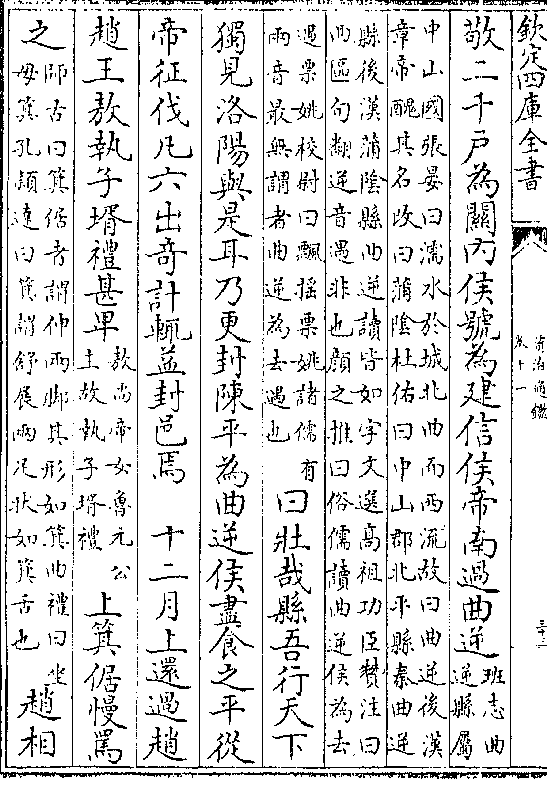 欽定四庫全書
資治通鑑
卷十一
三十二
敬二千戶為關內侯號為建信侯帝南過曲逆班志曲逆縣屬
中山國張晏曰濡水於城北曲而西流故曰曲逆後漢
章帝醜其名改曰蒲陰杜佑曰中山郡北平縣秦曲逆
縣後漢蒲陰縣曲逆讀皆如字文選高祖功臣贊注曰
曲區句翻逆音遇非也顔之推曰俗儒讀曲逆侯為去
遇票姚校尉曰飄搖票姚諸儒有
兩音最無謂者曲逆為去遇也
曰壯哉縣吾行天下
獨見洛陽與是耳乃更封陳平為曲逆侯盡食之平從
帝征伐凡六出奇計輒益封邑焉　十二月上還過趙
趙王敖執子壻禮甚卑敖尚帝女魯元公主故執子壻禮上箕倨慢罵
之師古曰箕倨者謂伸兩脚其形如箕曲禮曰坐毋箕孔穎達曰箕謂舒展兩足狀如箕舌也趙相